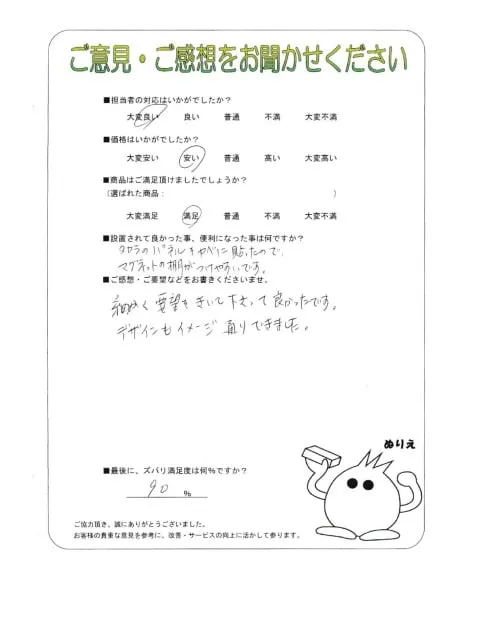 ご意見・ご感想をお聞かせください
■担当者の対応はいかがでしたか?
大変良い 良い 普通 不満 大変不満
■価格はいかがでしたか?
大変安い 安い 普通 高い 大変高い
■商品はご満足頂けましたでしょうか?
(選ばれた商品: )
大変満足 満足 普通 不満 大変不満
■設置されて良かった事、便利になった事は何ですか?
タカラのパネルをカベに貼ったので、
マグネットの棚がつけやすいです。
■ご感想・ご要望などをお書きくださいませ。
細かく要望をきいて下さって良かったです。
デザインもイメージ通りできました。
ぬりえ
■最後に、ズバリ満足度は何%ですか?
90 %
ご協力頂き、誠にありがとうございました。
お客様の貴重な意見を参考に、改善・サービスの向上に活かして参ります。